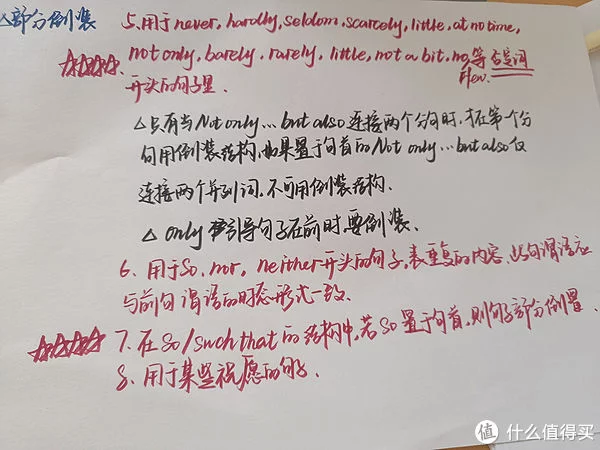 △部分倒装
5.用于never, hardly, seldom, scarcely, little, at no time,
not only, barely, rarely, little, not a bit, no等否定词
开头的句子里.
△只有当Not only...but also连接两个分句时,才在第一个分
句用倒装结构,如果置于句首的Not only...but also仅
连接两个并列词,不可用倒装结构.
△only 引导句子在前时,要倒装.
6.用于So, nor, neither开头的句子,表重复的内容,此句谓语应
与前句谓语的时态形式一致.
☆☆☆☆☆7.在So/such that的结构中,若So置于句首,则句子部分倒置.
8.用于某些祝愿的句子.
值 什么值得买